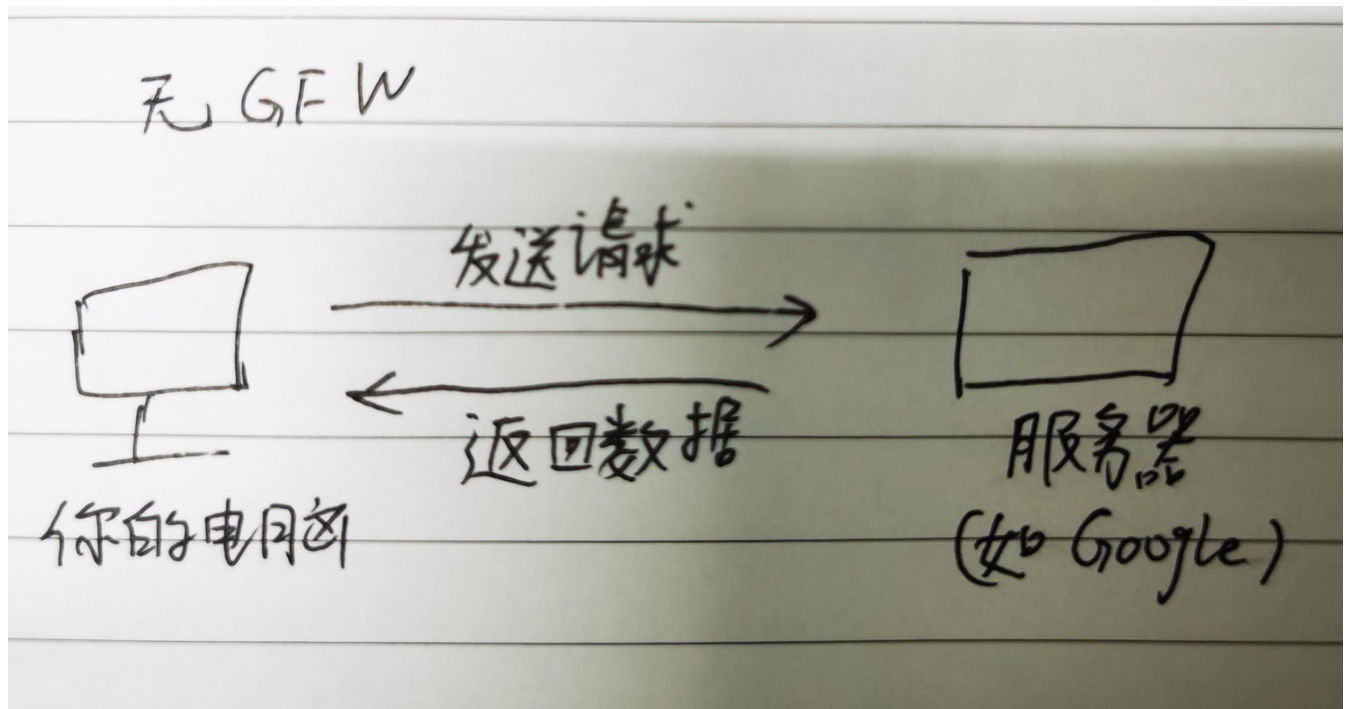 无 GFW
发送请求
返回数据
你的电脑
服务器
(如 Google)